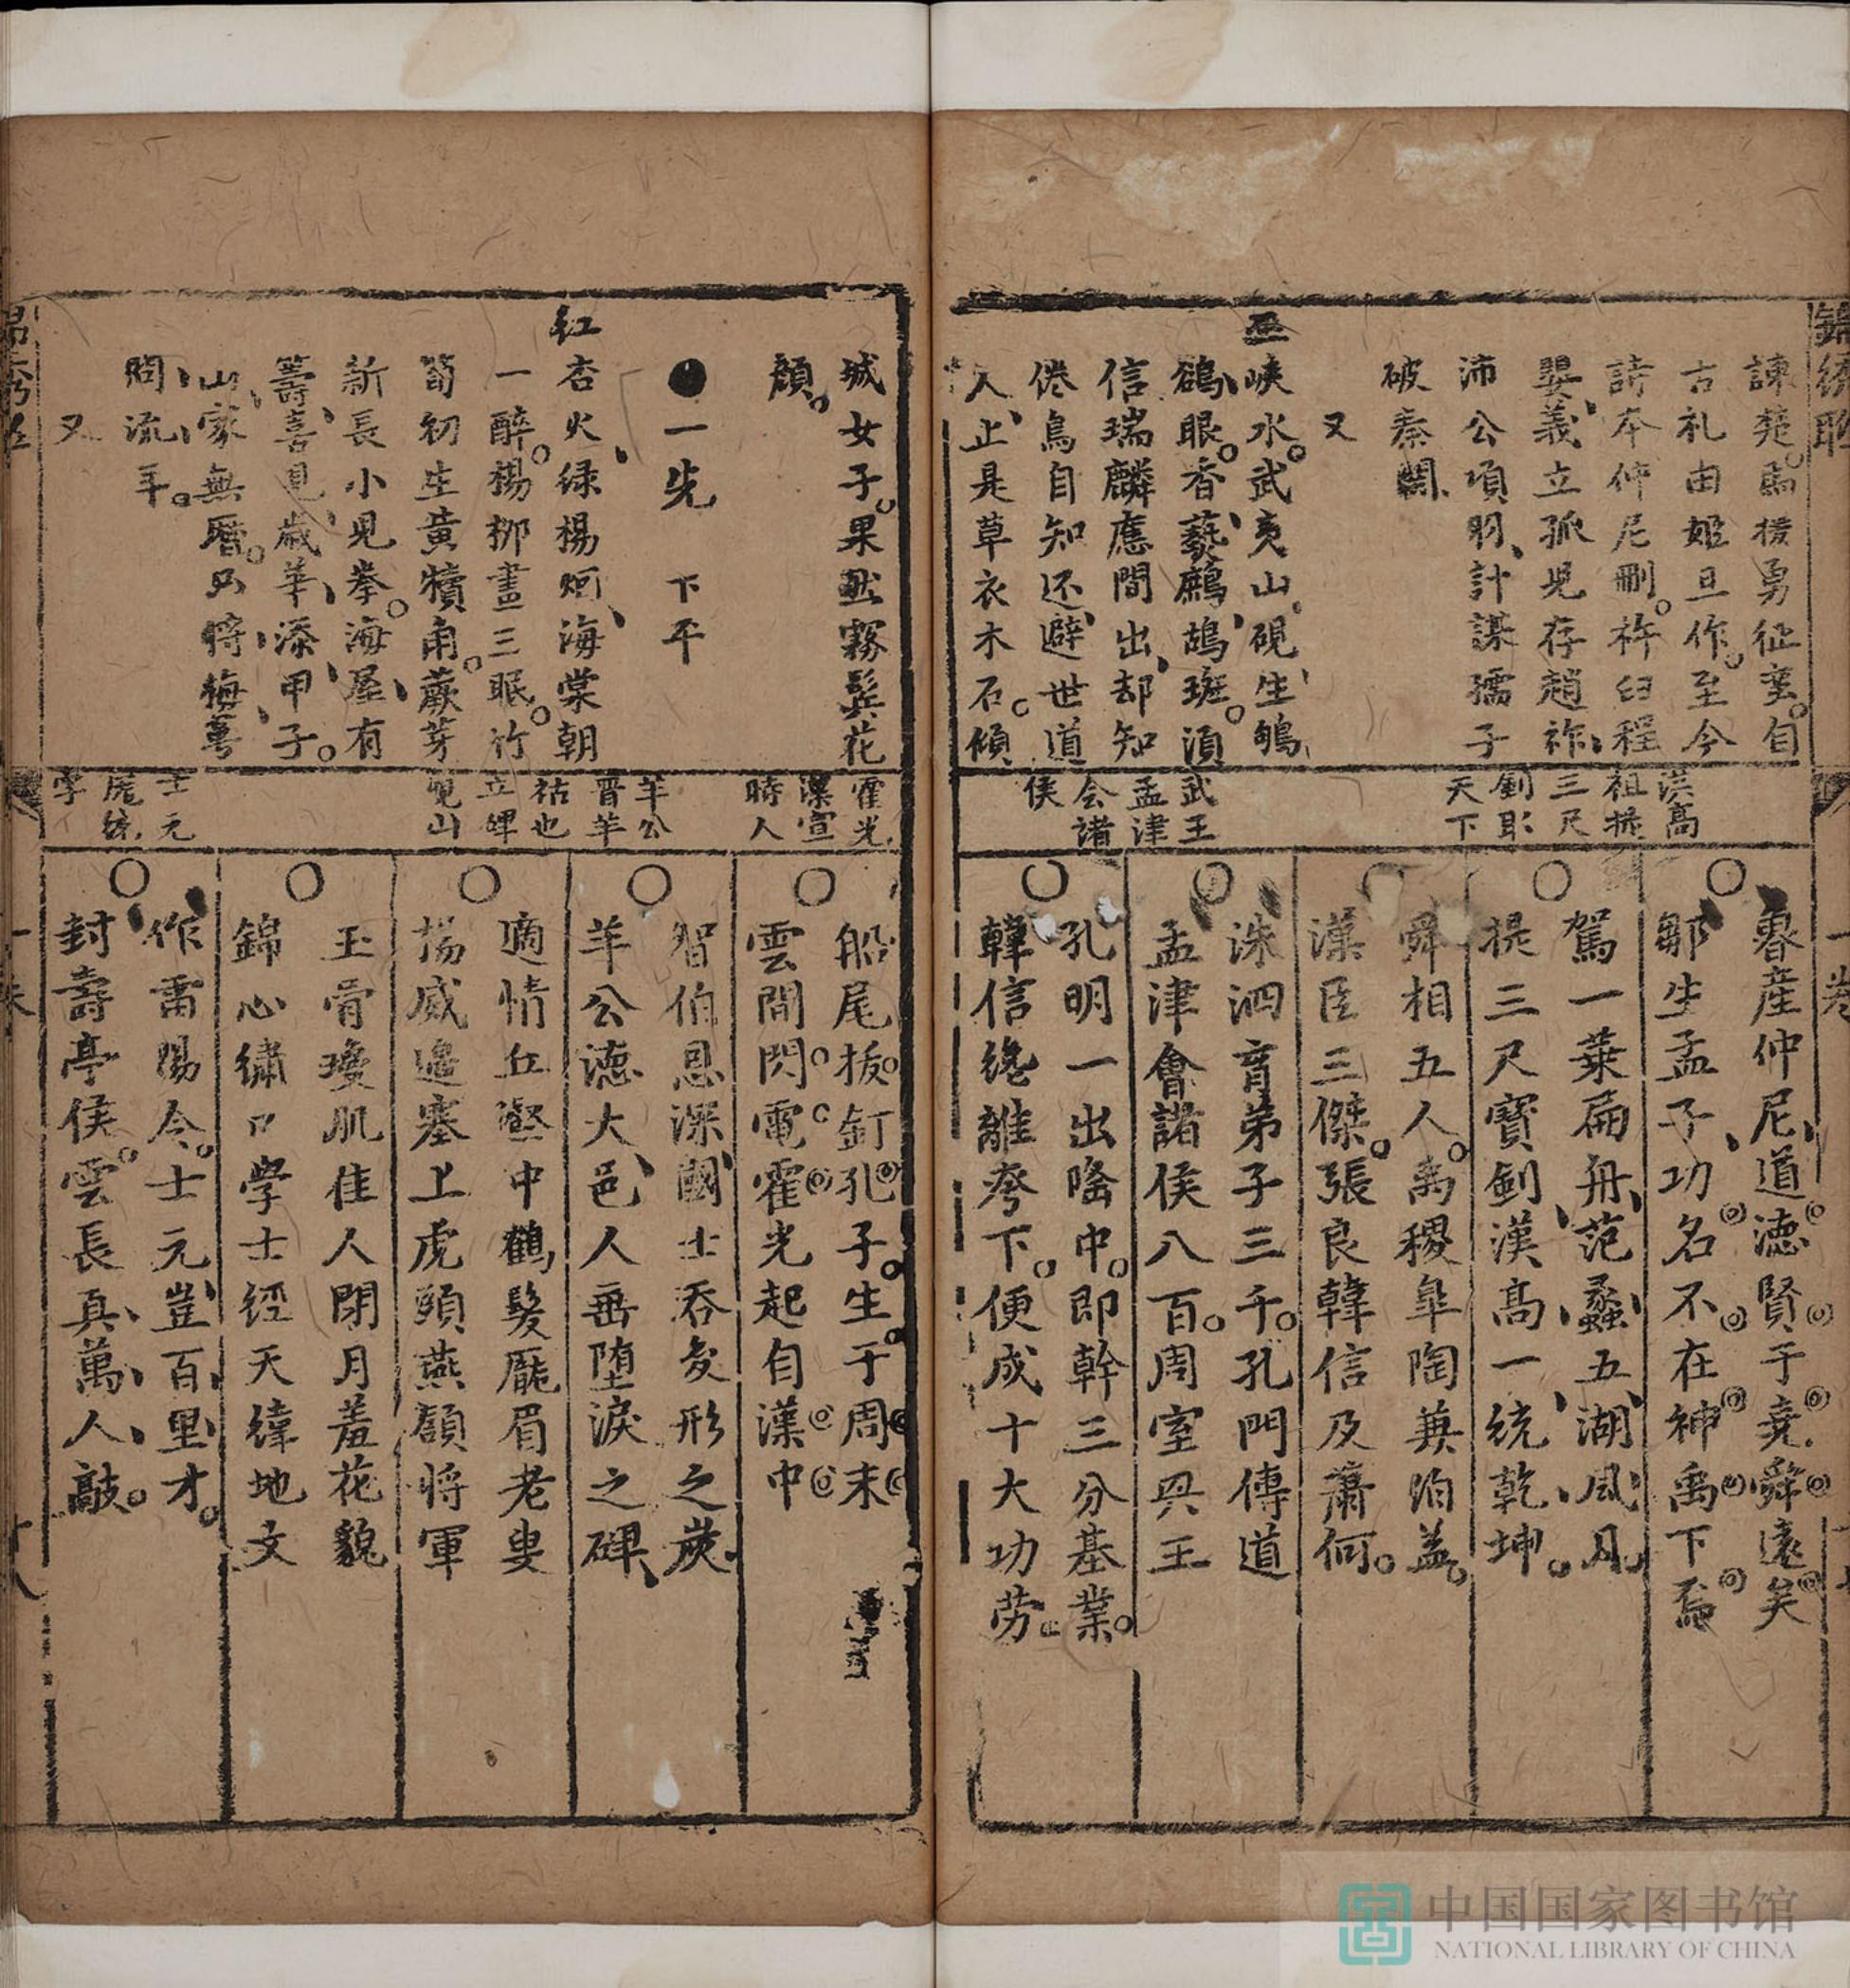 諫楚馬援勇征蛮自
古礼由姬旦作至今
詩本仲尼刪杵臼程
嬰義立孤児存趙祚
沛公項羽計謀孺子
破秦關
又
巫峽水武夷山硯生鴝
鵒眼香藝鷓鴣斑須
信瑞麟應間出却知
倦鳥自知还避世道
人止是草衣木石傾
洪髙
祖提
三尺
劍取
天下
武王
孟津
会諸
侯
魯産仲尼道德賢于堯舜遠矣
鄒生孟子功名不在神禹下焉
駕一葉扁舟范蠡五湖風月
提三尺寶劍漢髙一統乾坤
舜相五人禹稷臯陶兼伯益
漢臣三傑張良韓信及蕭何
洙泗育弟子三千孔門傳道
孟津會諸侯八百周室興王
孔明一出隆中即幹三分基業
韓信纔離胯下便成十大功劳
城女子果然霧髩花
顔
一先 下平
紅杏火緑楊烟海棠朝
一醉楊柳晝三眠竹
筍初生黄犢角蕨芽
新長小児拳海屋有
籌喜見歳華添甲子
山家無曆只将梅萼
問流年
又
霍光
漢宣
時人
羊公
晋羊
祜也
立碑
峴山
士元
庞統
字
船尾拔釘孔子生于周末
雲間閃電霍光起自漢中
智伯恩深國士吞変形之炭
羊公德大邑人垂堕淚之碑
適情丘壑中鶴髮厖眉老叟
揚威邉塞上虎頭燕頷将軍
玉骨瓊肌佳人閉月羞花貌
錦心繡口学士經天緯地文
作雷陽令士元豈百里才
封壽亭侯雲長真萬人敵
錦綉聯
一卷
中国国家图书馆
NATIONAL LIBRARY OF CHINA